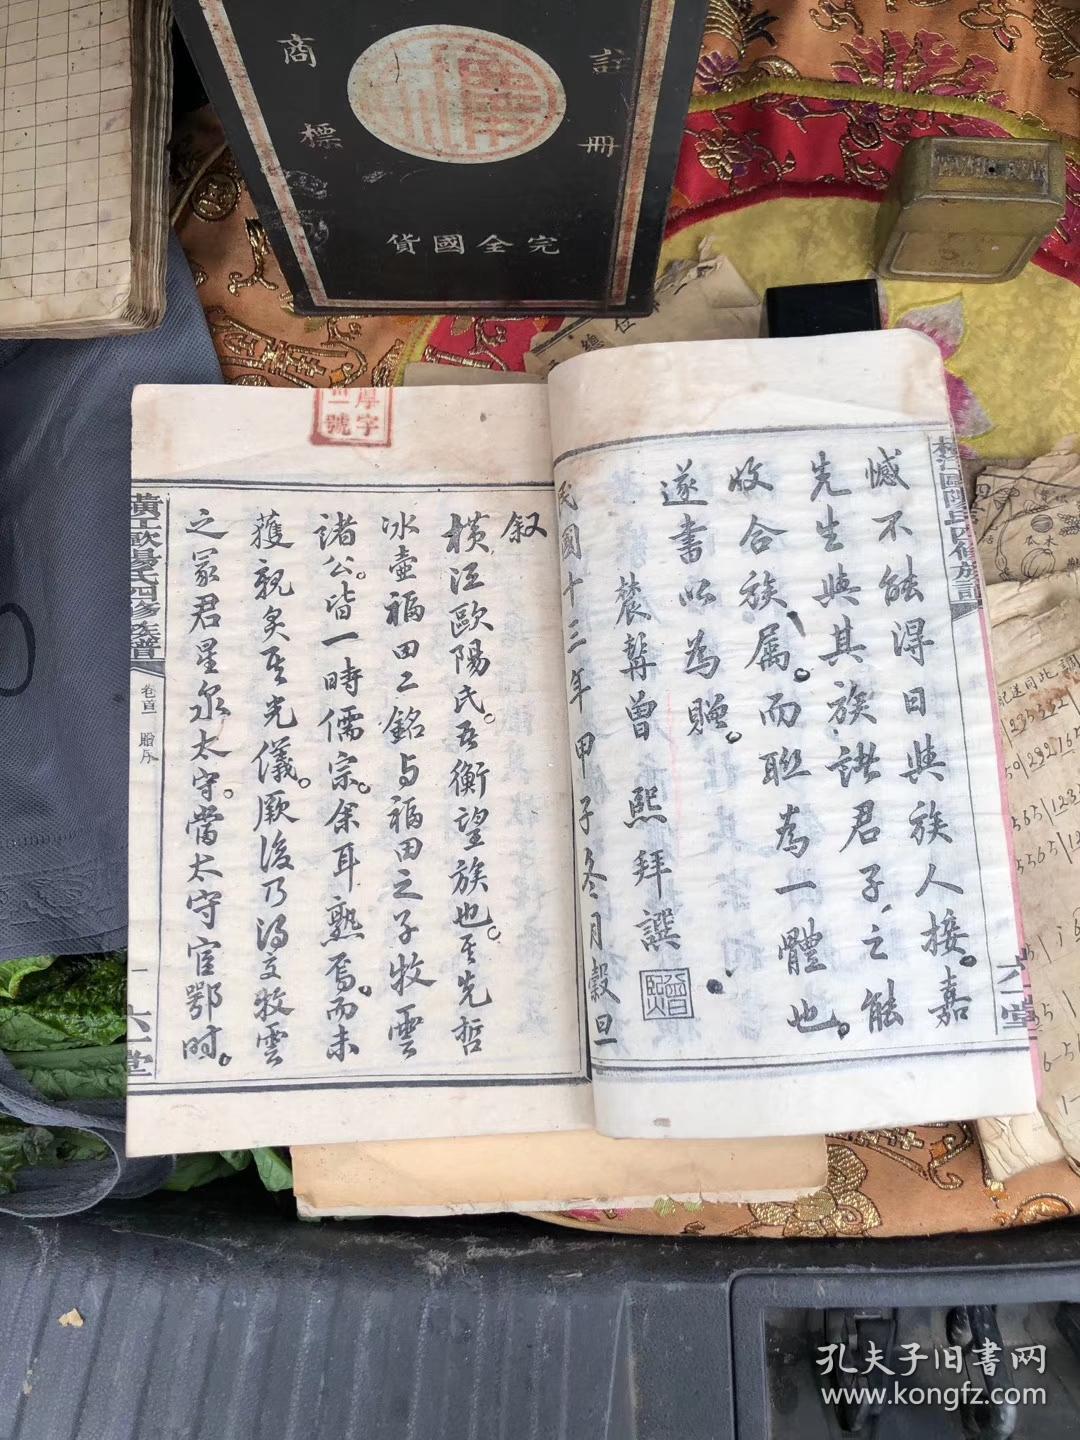 註冊
商標
完全國貨
憾不能得日與族人接。嘉
先生與其族諸君子之能
收合族属。而联為一體也。
遂書以為贈。
農髯曾熙拜譔
民國十三年甲子冬月穀旦
六一堂
厚字
一號
叙
橫江歐陽氏。吾衡望族也。其先哲
冰壺福田二銘与福田之子牧雲
諸公。皆一時儒宗。余耳熟焉。而未
獲親炙其光儀。厥後乃得交牧雲
之冢君星泉太守。當太守官鄂時。
橫江歐陽氏四修族譜
卷首一 贈序
一
六一堂
孔夫子旧書网
www.kongfz.com